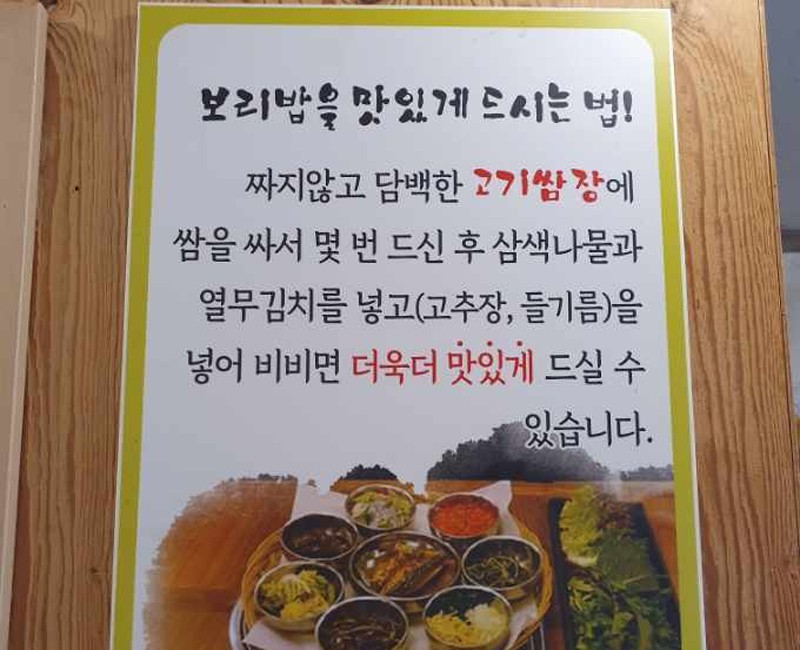 보리밥을 맛있게 드시는 법!
짜지않고 담백한 고기쌈장에
쌈을 싸서 몇 번 드신 후 삼색나물과
열무김치를 넣고(고추장, 들기름)을
넣어 비비면 더욱더 맛있게 드실 수
있습니다.